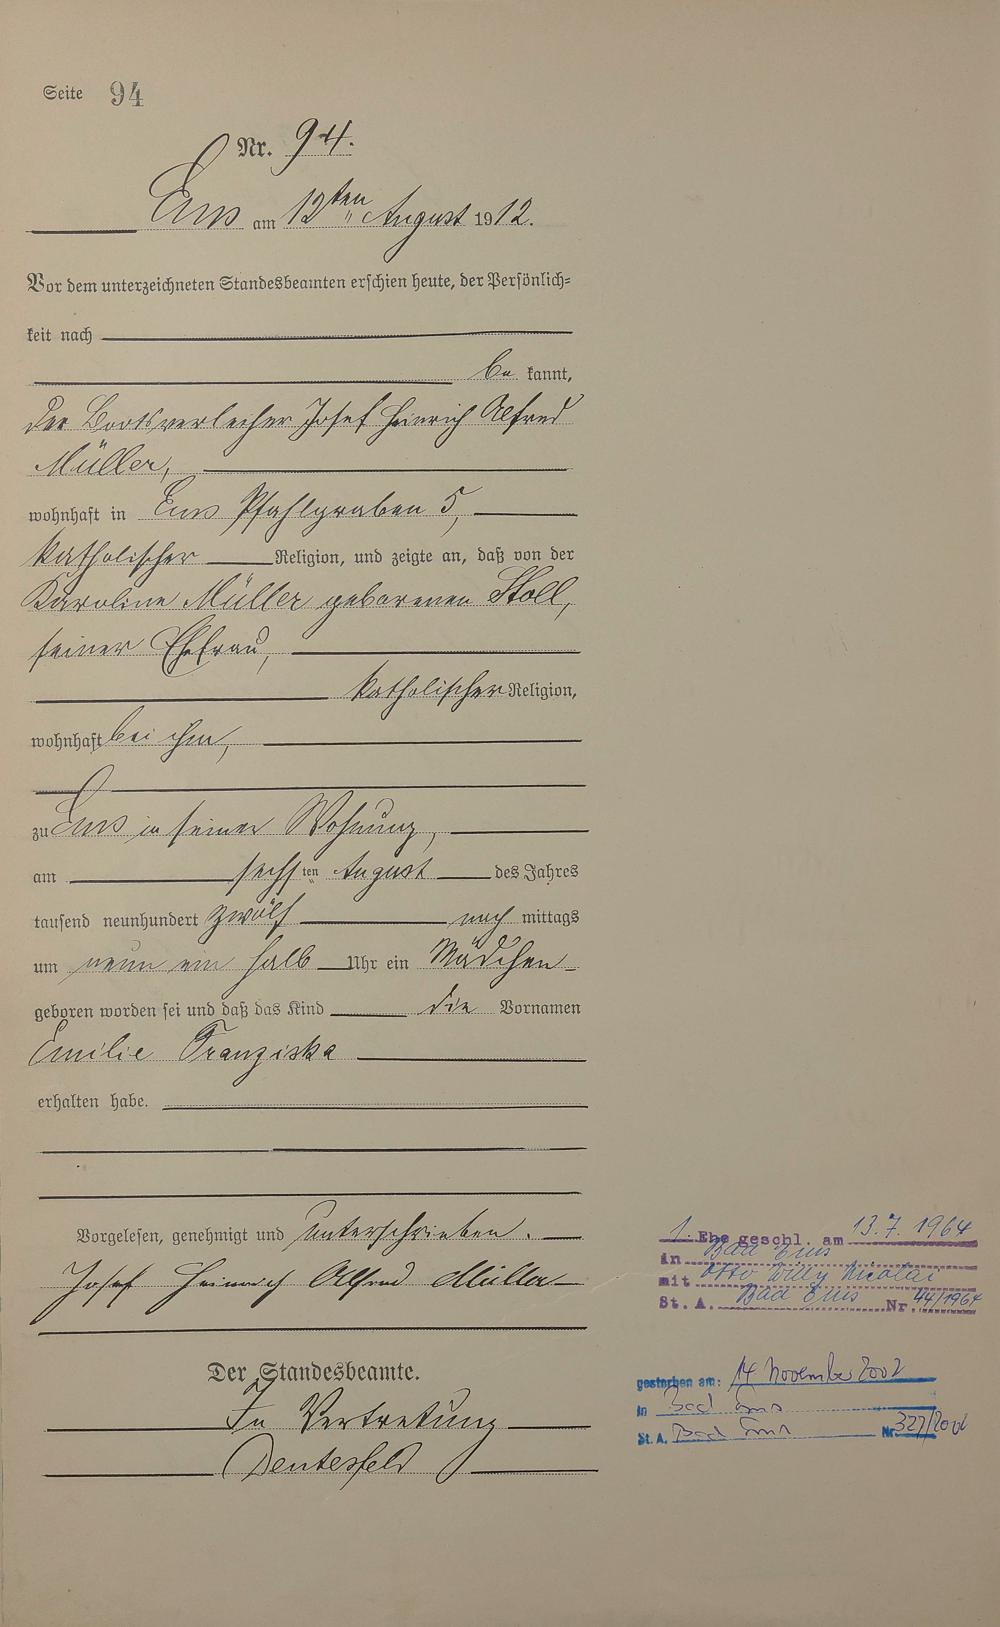 Seite 94
Nr. 94.
Ems am 12ten August 1912.
Vor dem unterzeichneten Standesbeamten erschien heute, der Persönlich-
keit nach
be kannt,
der Bootsverleiher Josef Heinrich Alfred
Müller,
wohnhaft in Ems Pfahlgraben 5,
katholischer Religion, und zeigte an, daß von der
Karoline Müller geborenen Stoll,
seiner Ehefrau,
katholischer Religion,
wohnhaft bei ihm,
zu Ems in seiner Wohnung,
am sechsten August des Jahres
tausend neunhundert zwölf nach mittags
um neun ein halb Uhr ein Mädchen
geboren worden sei und daß das Kind die Vornamen
Emilie Franziska
erhalten habe.
Vorgelesen, genehmigt und unterschrieben.
Josef Heinrich Alfred Müller
Der Standesbeamte.
In Vertretung
1. Ehe geschl. am 13.7.1964
in Bad Ems
mit Otto Willy Nicolai
St. A. Bad Ems Nr. 44/1964
gestorben am: 14 November 2002
in Bad Ems
St. A. Bad Ems Nr. 327/2002